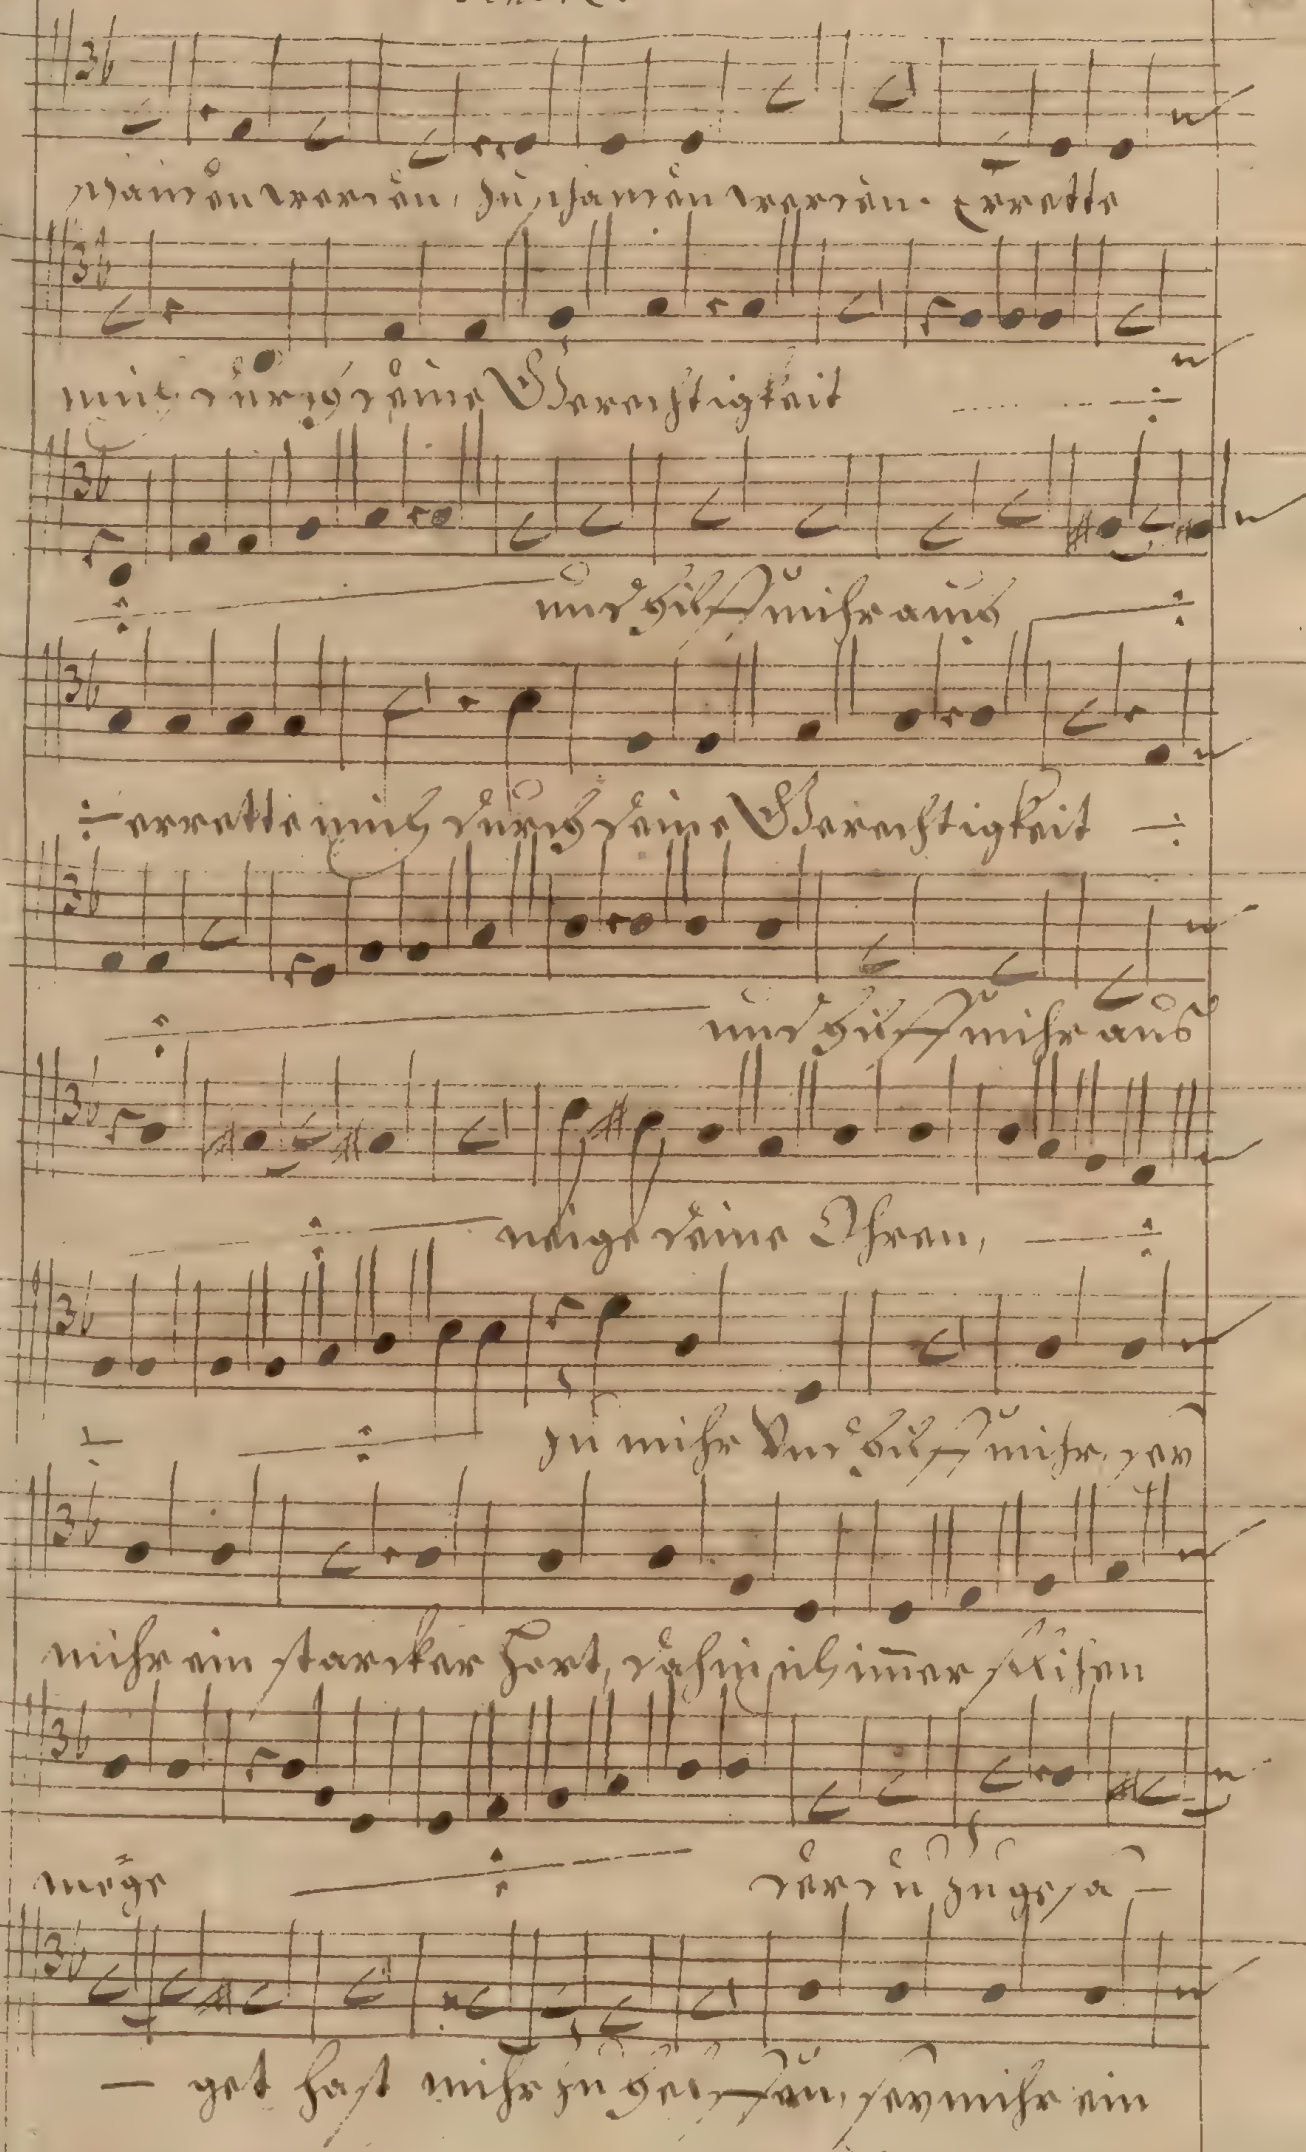 schanden werden, zu schanden werden. Errette
mich durch deine Gerechtigkeit
und hilff mihr auß
errette mich durch deine Gerechtigkeit
und hilff mihr auß
neige deine Ohren,
zu mihr Und hilff mihr, sey
mihr ein starcker Hort, dahin ich im̄er fliehen
möge der du zu gesa –
– get hast mihr zu helffen, sey mihr ein